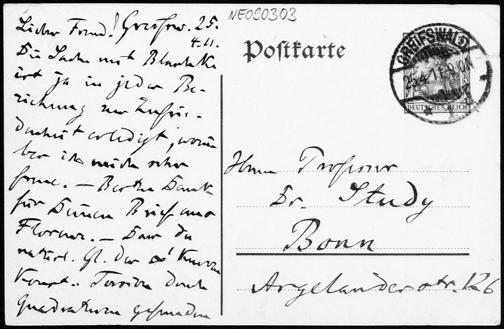 NE090303
Lieber Freund! Greifsw. 25.
4.11.
Die Sache mit Blaschke
ist ja in jeder Be-
ziehung zur Zufrie-
denheit erledigt, worü-
ber ich mich sehr
freue. — Besten Dank
für Deinen Brief aus
Florenz. —
natürl. Gl. der
Konst. Torsion durch
Quadraturen gefunden
Postkarte
GREIFSWALD
25.4.11.
DEUTSCHES REICH
Herrn Professor
Dr. Study
Bonn
Argelanderstr. 126